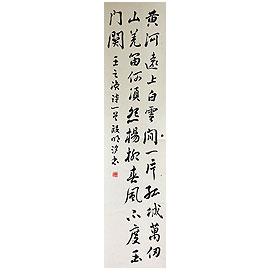 黄河遠上白雲間一片孤城萬仞
山羌笛何須怨楊柳春風不度玉
門關
王之渙詩一首